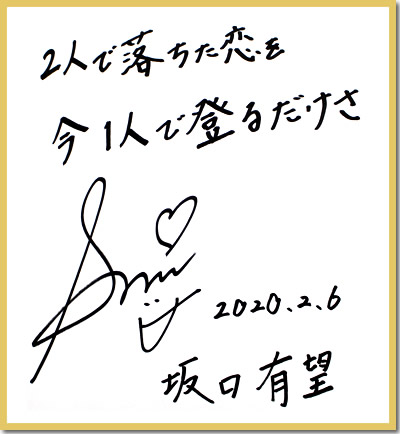 2人で落ちた恋を
今1人で登るだけさ
2020.2.6
坂口有望